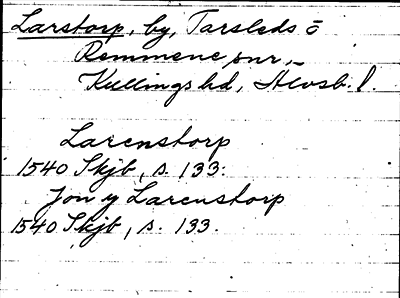 Larstorp, by, Tarsleds o
Remmene snr,
Kullings hd, Älvsb. l.
Larenstorp
1540 Skjb, s. 133.
Jon y Larenstorp
1540 Skjb, s. 133.